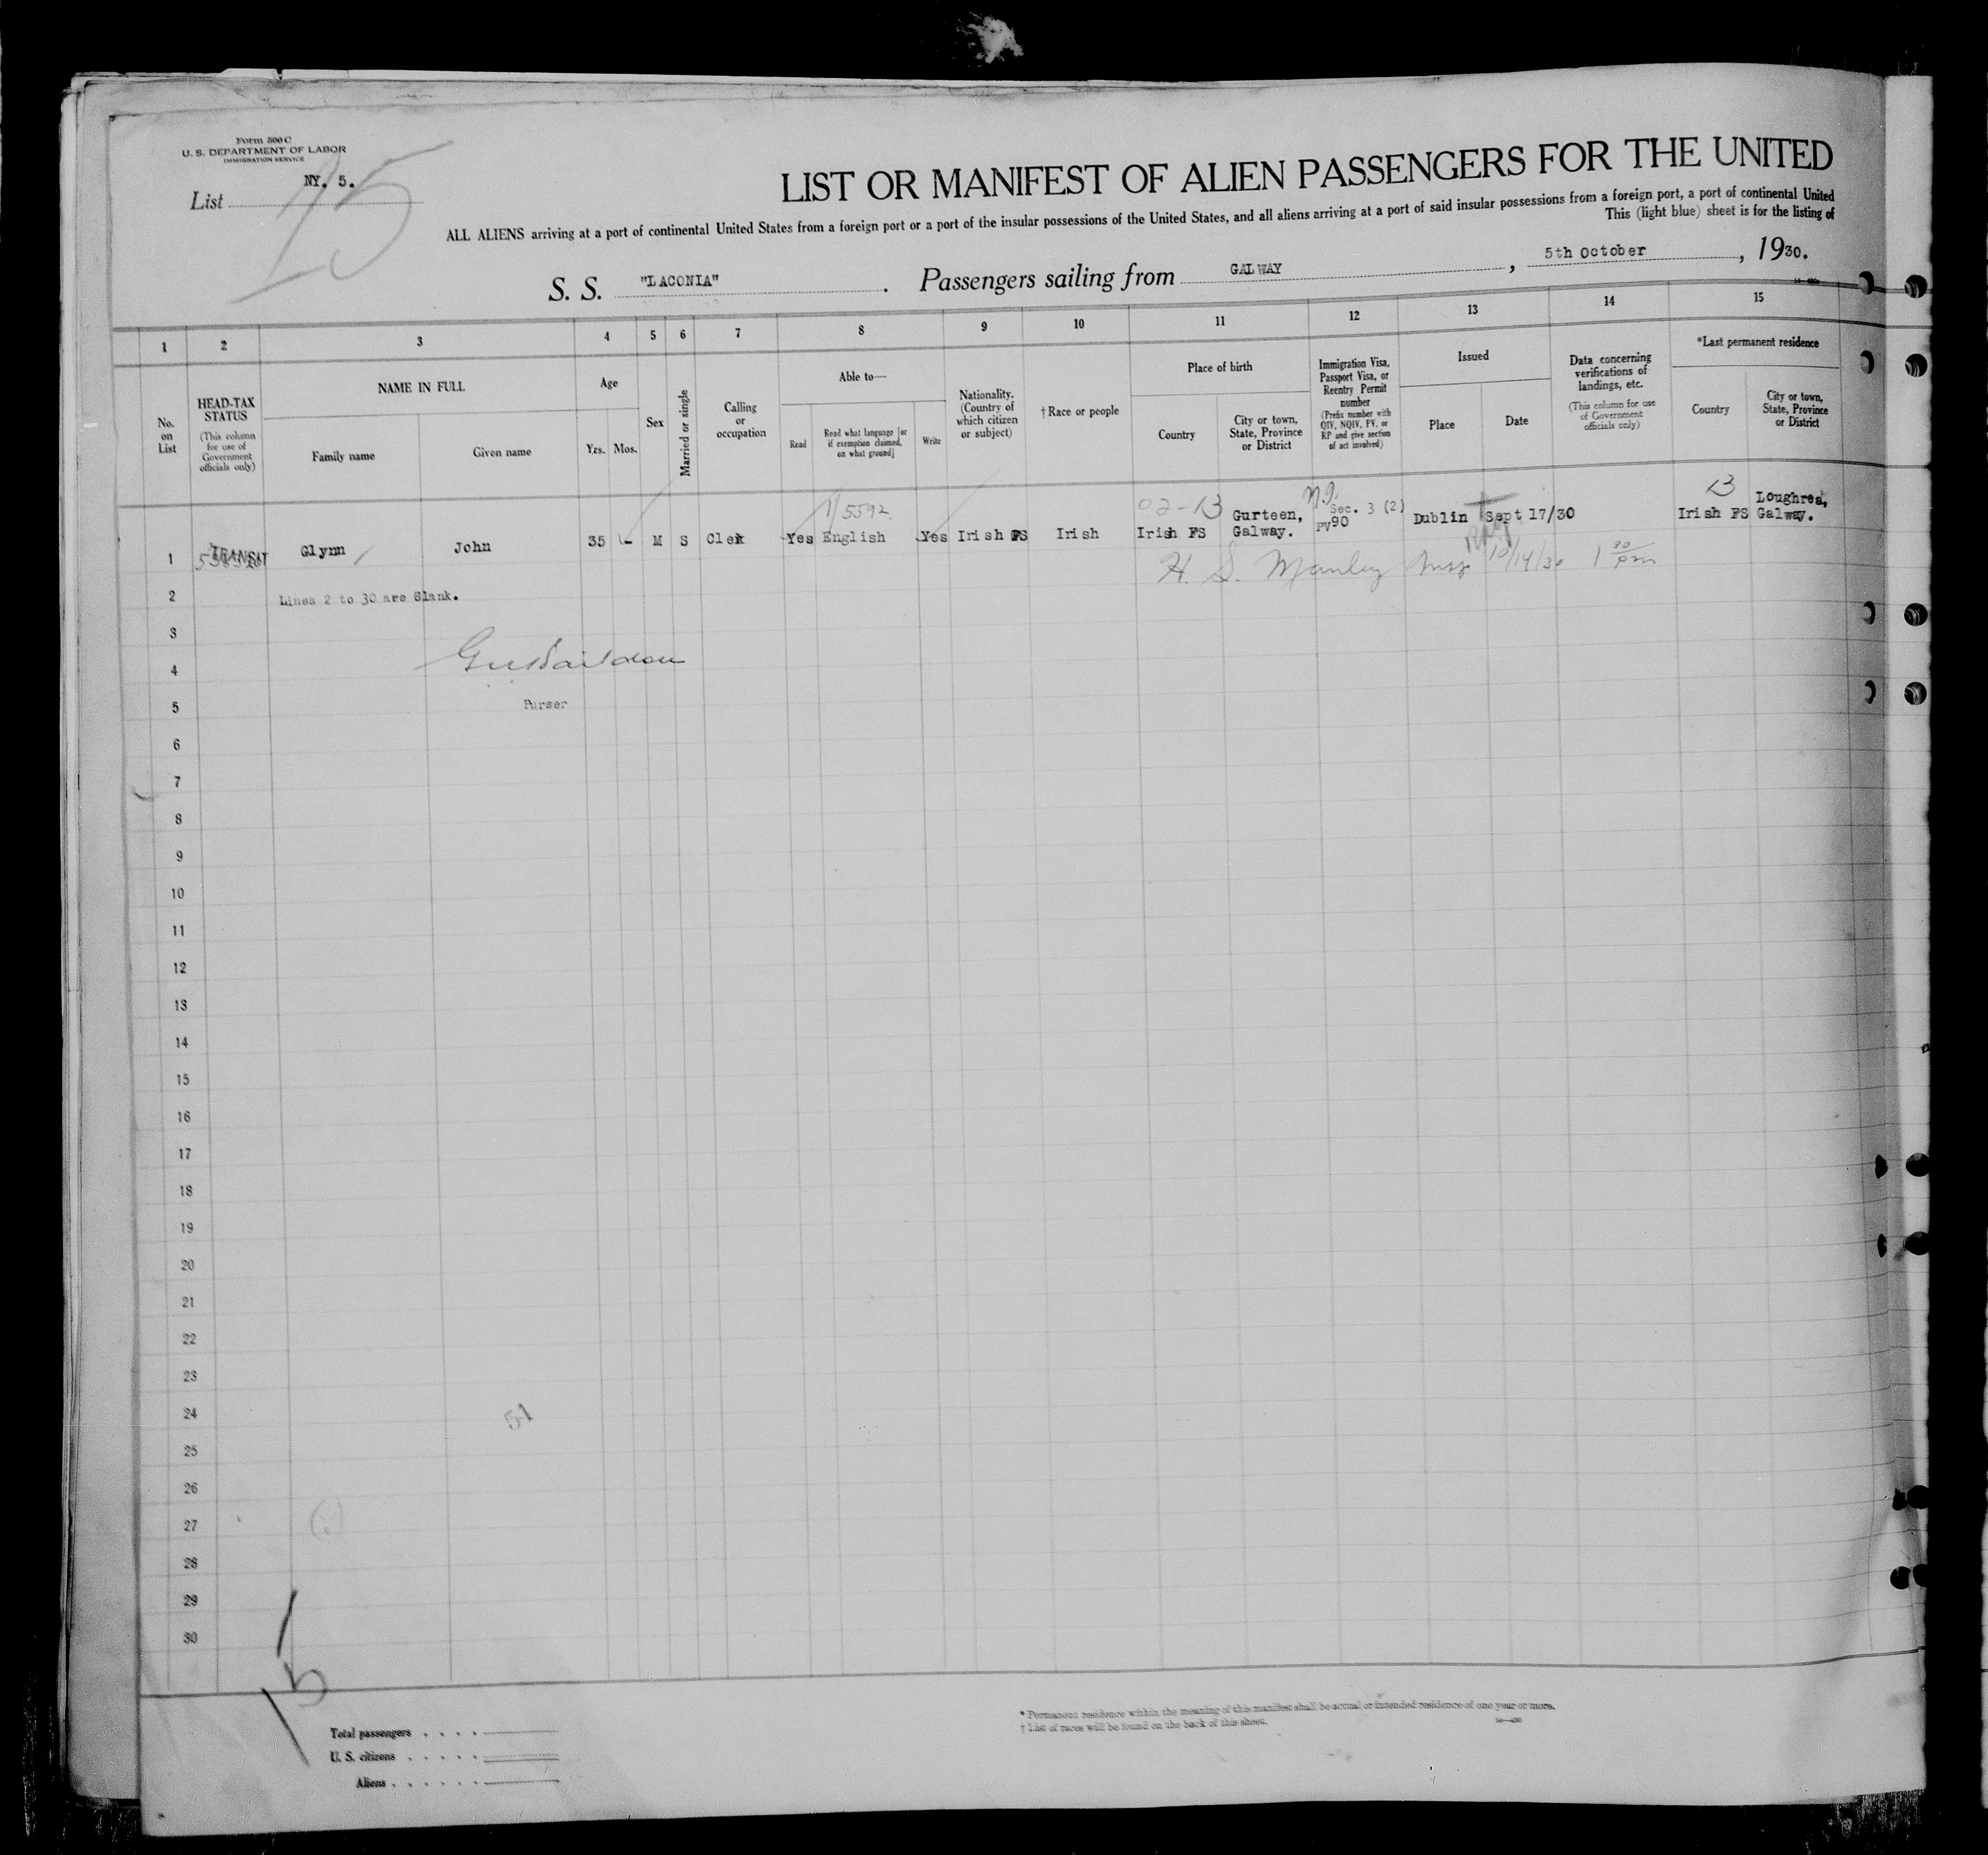 Form 500 C
U. S. DEPARTMENT OF LABOR
IMMIGRATION SERVICE
List NY. 5.
15
LIST OR MANIFEST OF ALIEN PASSENGERS FOR THE UNITED
ALL ALIENS arriving at a port of continental United States from a foreign port or a port of the insular possessions of the United States, and all aliens arriving at a port of said insular possessions from a foreign port, a port of continental United
This (light blue) sheet is for the listing of
S. S. "LACONIA" . Passengers sailing from GALWAY , 5th October , 1930.
1 2 3 4 5 6 7 8 9 10 11 12 13 14 15
No. on List
HEAD-TAX STATUS
(This column for use of Government officials only)
NAME IN FULL
Family name
Given name
Age
Yrs. Mos.
Sex
Married or single
Calling or occupation
Able to—
Read
Read what language [or if exemption claimed, on what ground]
Write
Nationality. (Country of which citizen or subject)
† Race or people
Place of birth
Country
City or town, State, Province or District
Immigration Visa, Passport Visa, or Reentry Permit number
(Prefix number with QIV, NQIV, PV, or RP and give section of act involved)
Issued
Place
Date
Data concerning verifications of landings, etc.
(This column for use of Government officials only)
*Last permanent residence
Country
City or town, State, Province or District
1/5592 02-13 Gurteen, Sec. 3 (2) B Loughrea,
1 TRANSIT Glynn John 35 - M S Clek Yes English Yes Irish FS Irish Irish FS Galway. PV90 Dublin Sept 17/30 Irish FS Galway.
H. S. Manley 10/14/30 1 30 pm
2 Lines 2 to 30 are Blank.
3
4
5 Purser
6
7
8
9
10
11
12
13
14
15
16
17
18
19
20
21
22
23
24
51
25
26
27
28
29
30
15
Total passengers
U. S. citizens
Aliens
* Permanent residence within the meaning of this manifest shall be actual or intended residence of one year or more.
† List of races will be found on the back of this sheet.